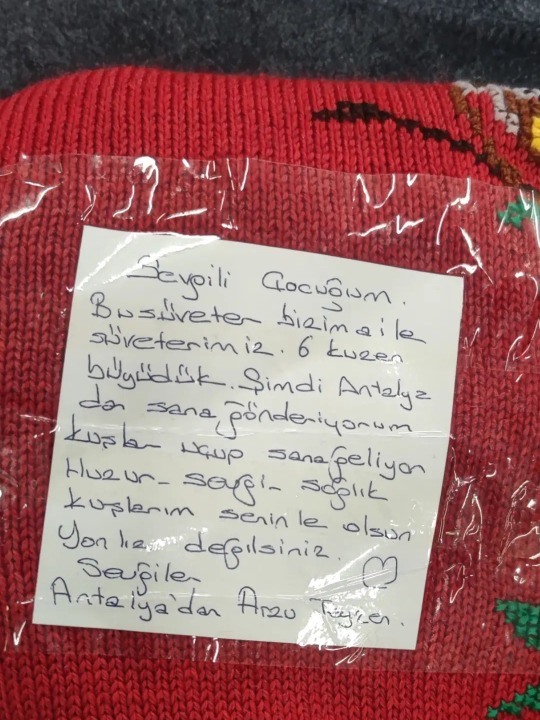 Sevgili Çocuğum.
Bu süveter bizim aile
süveterimiz. 6 kuzen
büyüdük. Şimdi Antalya
dan sana gönderiyorum
kuşlar uçup sana geliyor
Huzur - sevgi - sağlık
kuşlarım seninle olsun
Yanlız değilsiniz. ♡
Sevgiler
Antalya'dan Arzu